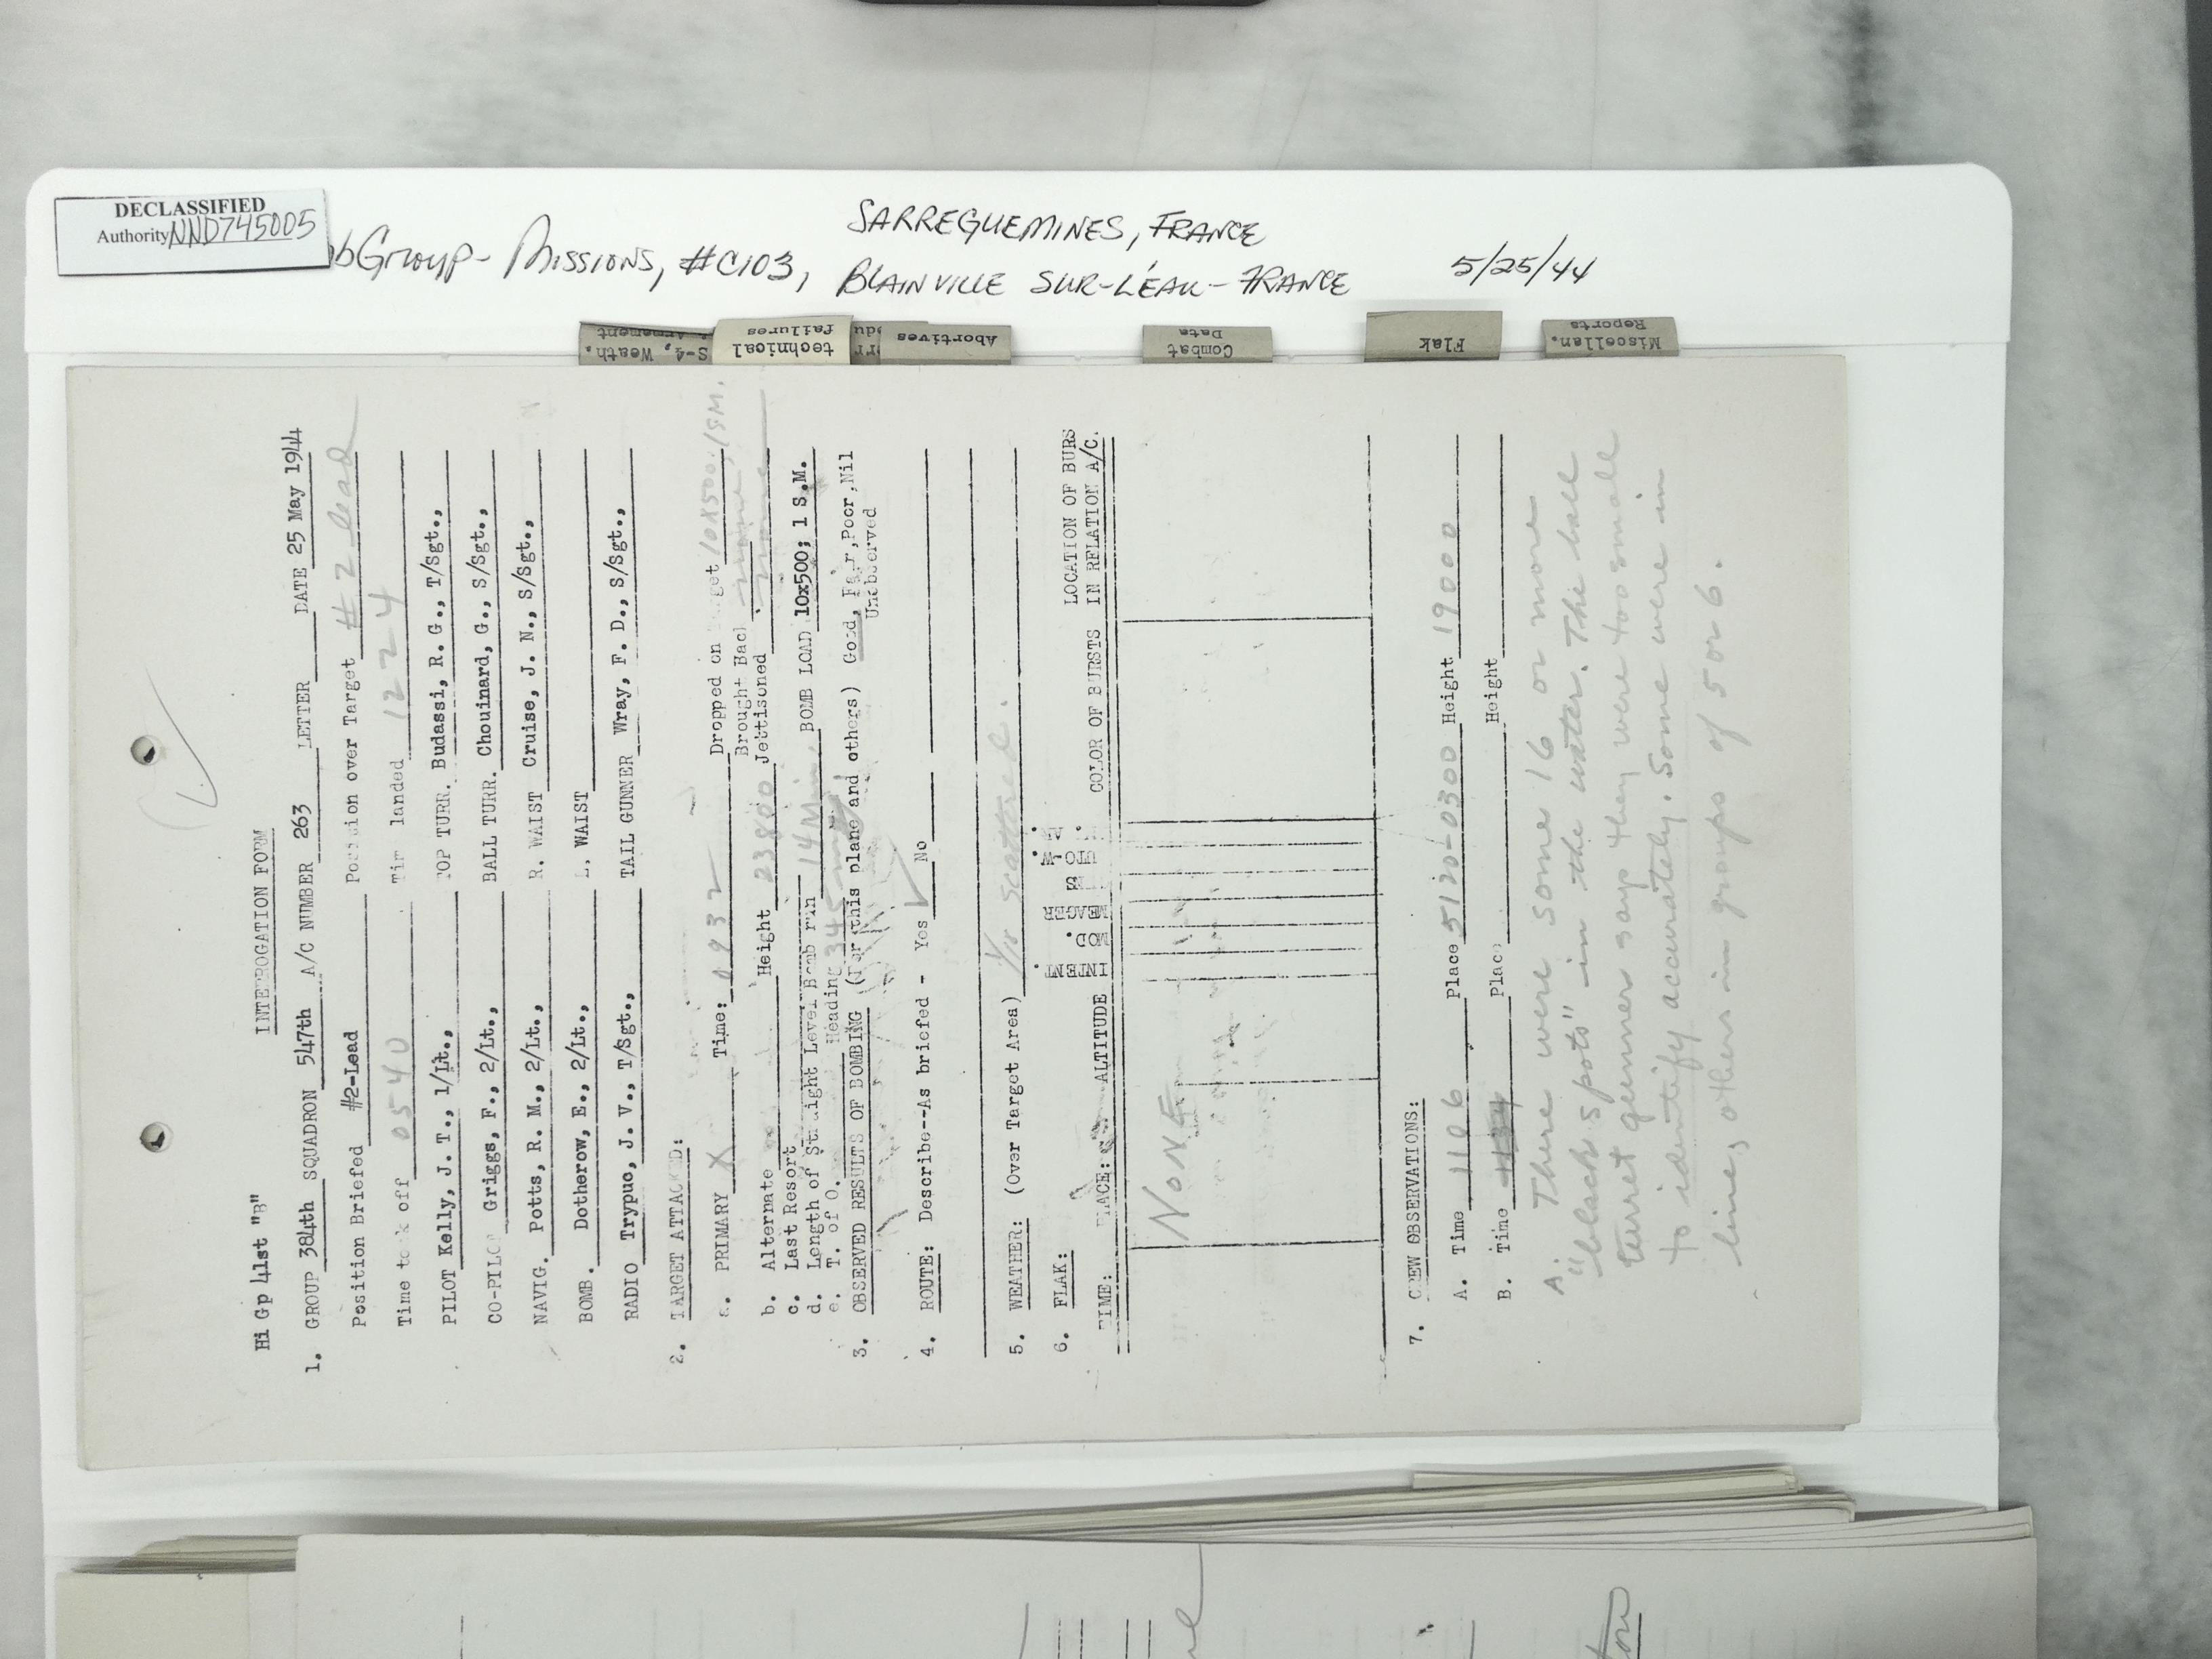 DECLASSIFIED
Authority NND745005
Group - Missions, #C103,
SARREGUEMINES, FRANCE
BLAINVILLE SUR-L'EAU - FRANCE
5/25/44
S-4, Weath.
Armament
technical
failures
Abortives
Combat
Data
Flak
Miscellan.
Reports
Hi Gp 41st "B"
INTERROGATION FORM
1. GROUP 384th SQUADRON 547th A/C NUMBER 263 LETTER DATE 25 May 1944
Position Briefed #2-Lead Position over Target #2 lead
Time took off 0540 Time landed 1224
PILOT Kelly, J. T., 1/Lt., TOP TURR. Budassi, R. G., T/Sgt.,
CO-PILOT Griggs, F., 2/Lt., BALL TURR. Chouinard, G., S/Sgt.,
NAVIG. Potts, R. M., 2/Lt., R. WAIST Cruise, J. N., S/Sgt.,
BOMB. Dotherow, E., 2/Lt., L. WAIST
RADIO Trypuc, J. V., T/Sgt., TAIL GUNNER Wray, F. D., S/Sgt.,
2. TARGET ATTACKED:
a. PRIMARY X Time: 0932 Dropped on Target 10X500, 1 SM.
Brought Back none
b. Alternate Height 23800 Jettisoned none
c. Last Resort
d. Length of Straight Level Bomb run 14 Min. BOMB LOAD 10x500; 1 S.M.
e. T. of O. Heading 345
3. OBSERVED RESULTS OF BOMBING (For this plane and others) Good, Fair, Poor, Nil
Unobserved
4. ROUTE: Describe--As briefed - Yes ✓ No
5. WEATHER: (Over Target Area) 1/10 scattered.
6. FLAK: LOCATION OF BURS
TIME: PLACE: ALTITUDE INTENT. MOD. MEAGER COLOR OF BURSTS IN RELATION A/C.
NONE
7. CREW OBSERVATIONS:
A. Time 1106 Place 5120-0300 Height 19000
B. Time Place Height
A. There were some 16 or more
"black spots" in the water. The ball
turret gunner says they were too small
to identify accurately. Some were in
line, others in groups of 5 or 6.